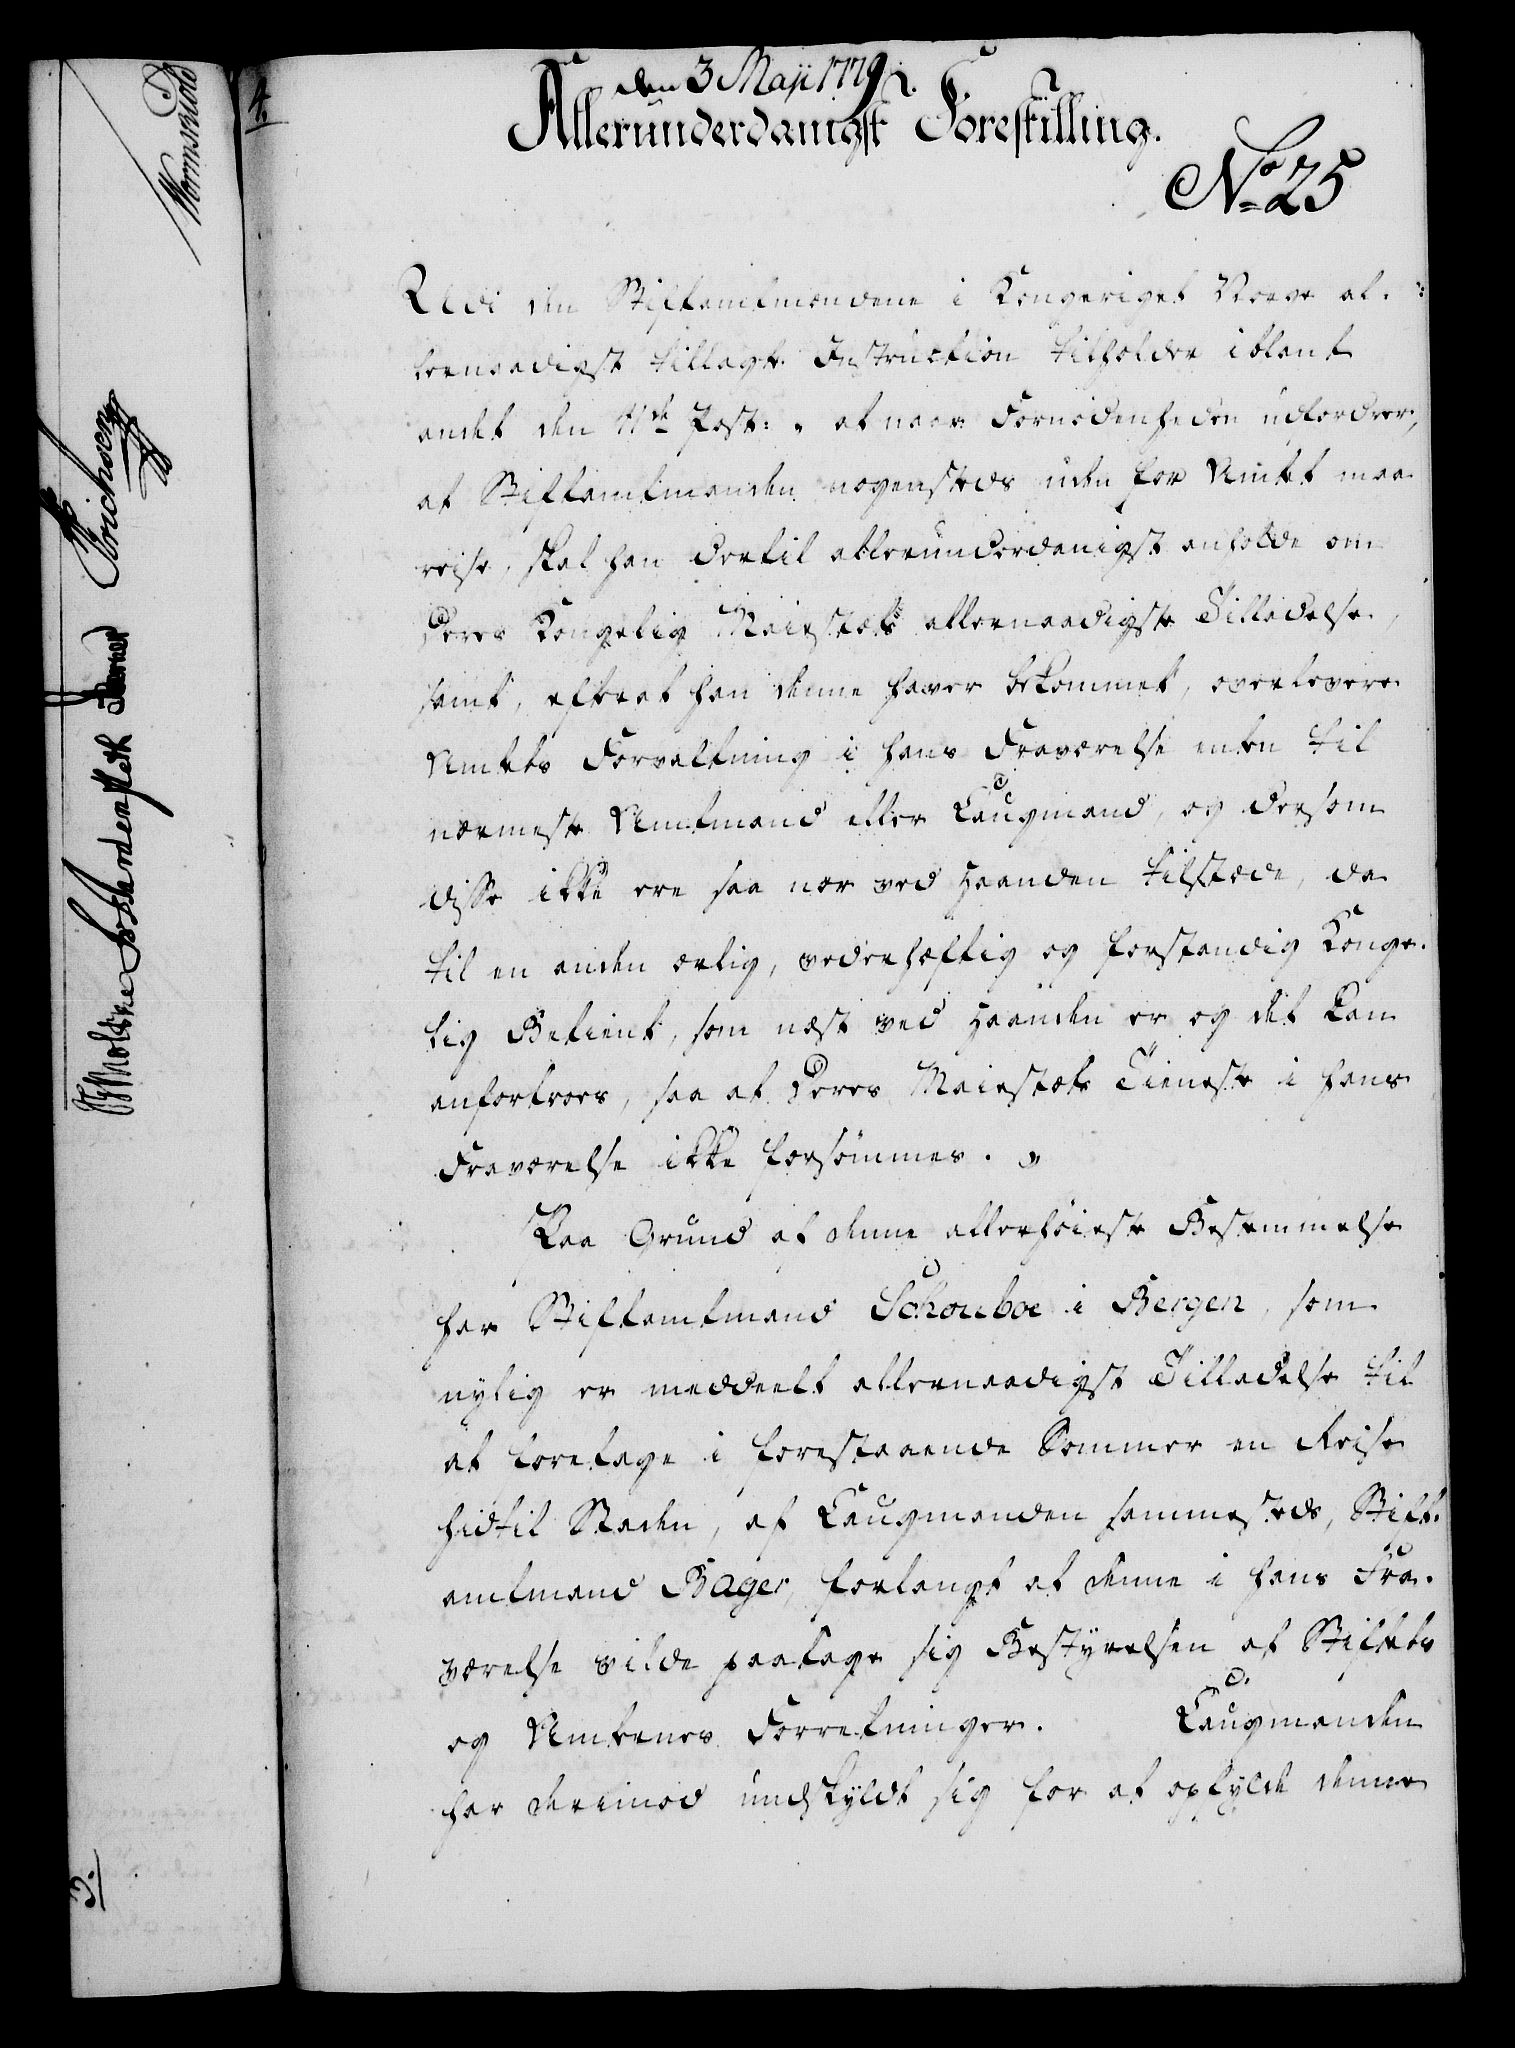 4.
den 3 Maji 1779.
Allerunderdanigst Forestilling.
No 25
Udi den Stiftamtmændene i Kongeriget Norge al-
lernaadigst tillagte Instruction tilholder iblant
andet den 11de Post: „ at naar Fornødenheden udfordrer,
at Stiftamtmanden nogensteds uden for Amtet maa
reise, skal han dertil allerunderdanigst anholde om
Deres Kongelig Maiestæts allernaadigste Tilladelse,
samt, efterat han denne haver bekommet, overlevere
Amtets Forvaltning i hans Fraværelse enten til
nærmeste Amtmand eller Laugmand, og dersom
disse ikke ere saa nær ved Haanden tilstæde, da
til en anden ærlig, vederhæftig og forstandig Konge-
lig Betient, som næst ved Haanden er og det kan
anfortroes, saa at Deres Maiestæts Tieneste i hans
Fraværelse ikke forsømmes. „
Paa Grund af denne allerhøieste Bestemmelse
har Stiftamtmand Schouboe i Bergen, som
nylig er meddeelt allernaadigst Tilladelse til
at foretage i forestaaende Sommer en Reise
hidtil Staden, af Laugmanden sammesteds, Stift-
amtmand Bager, forlangt at denne i hans Fra-
værelse vilde paatage sig Bestyrelsen af Stiftets
og Amtenes Forretninger. Laugmanden
har derimod undskyldt sig for at opfylde denne
Wormskiold
Erichsen
3.